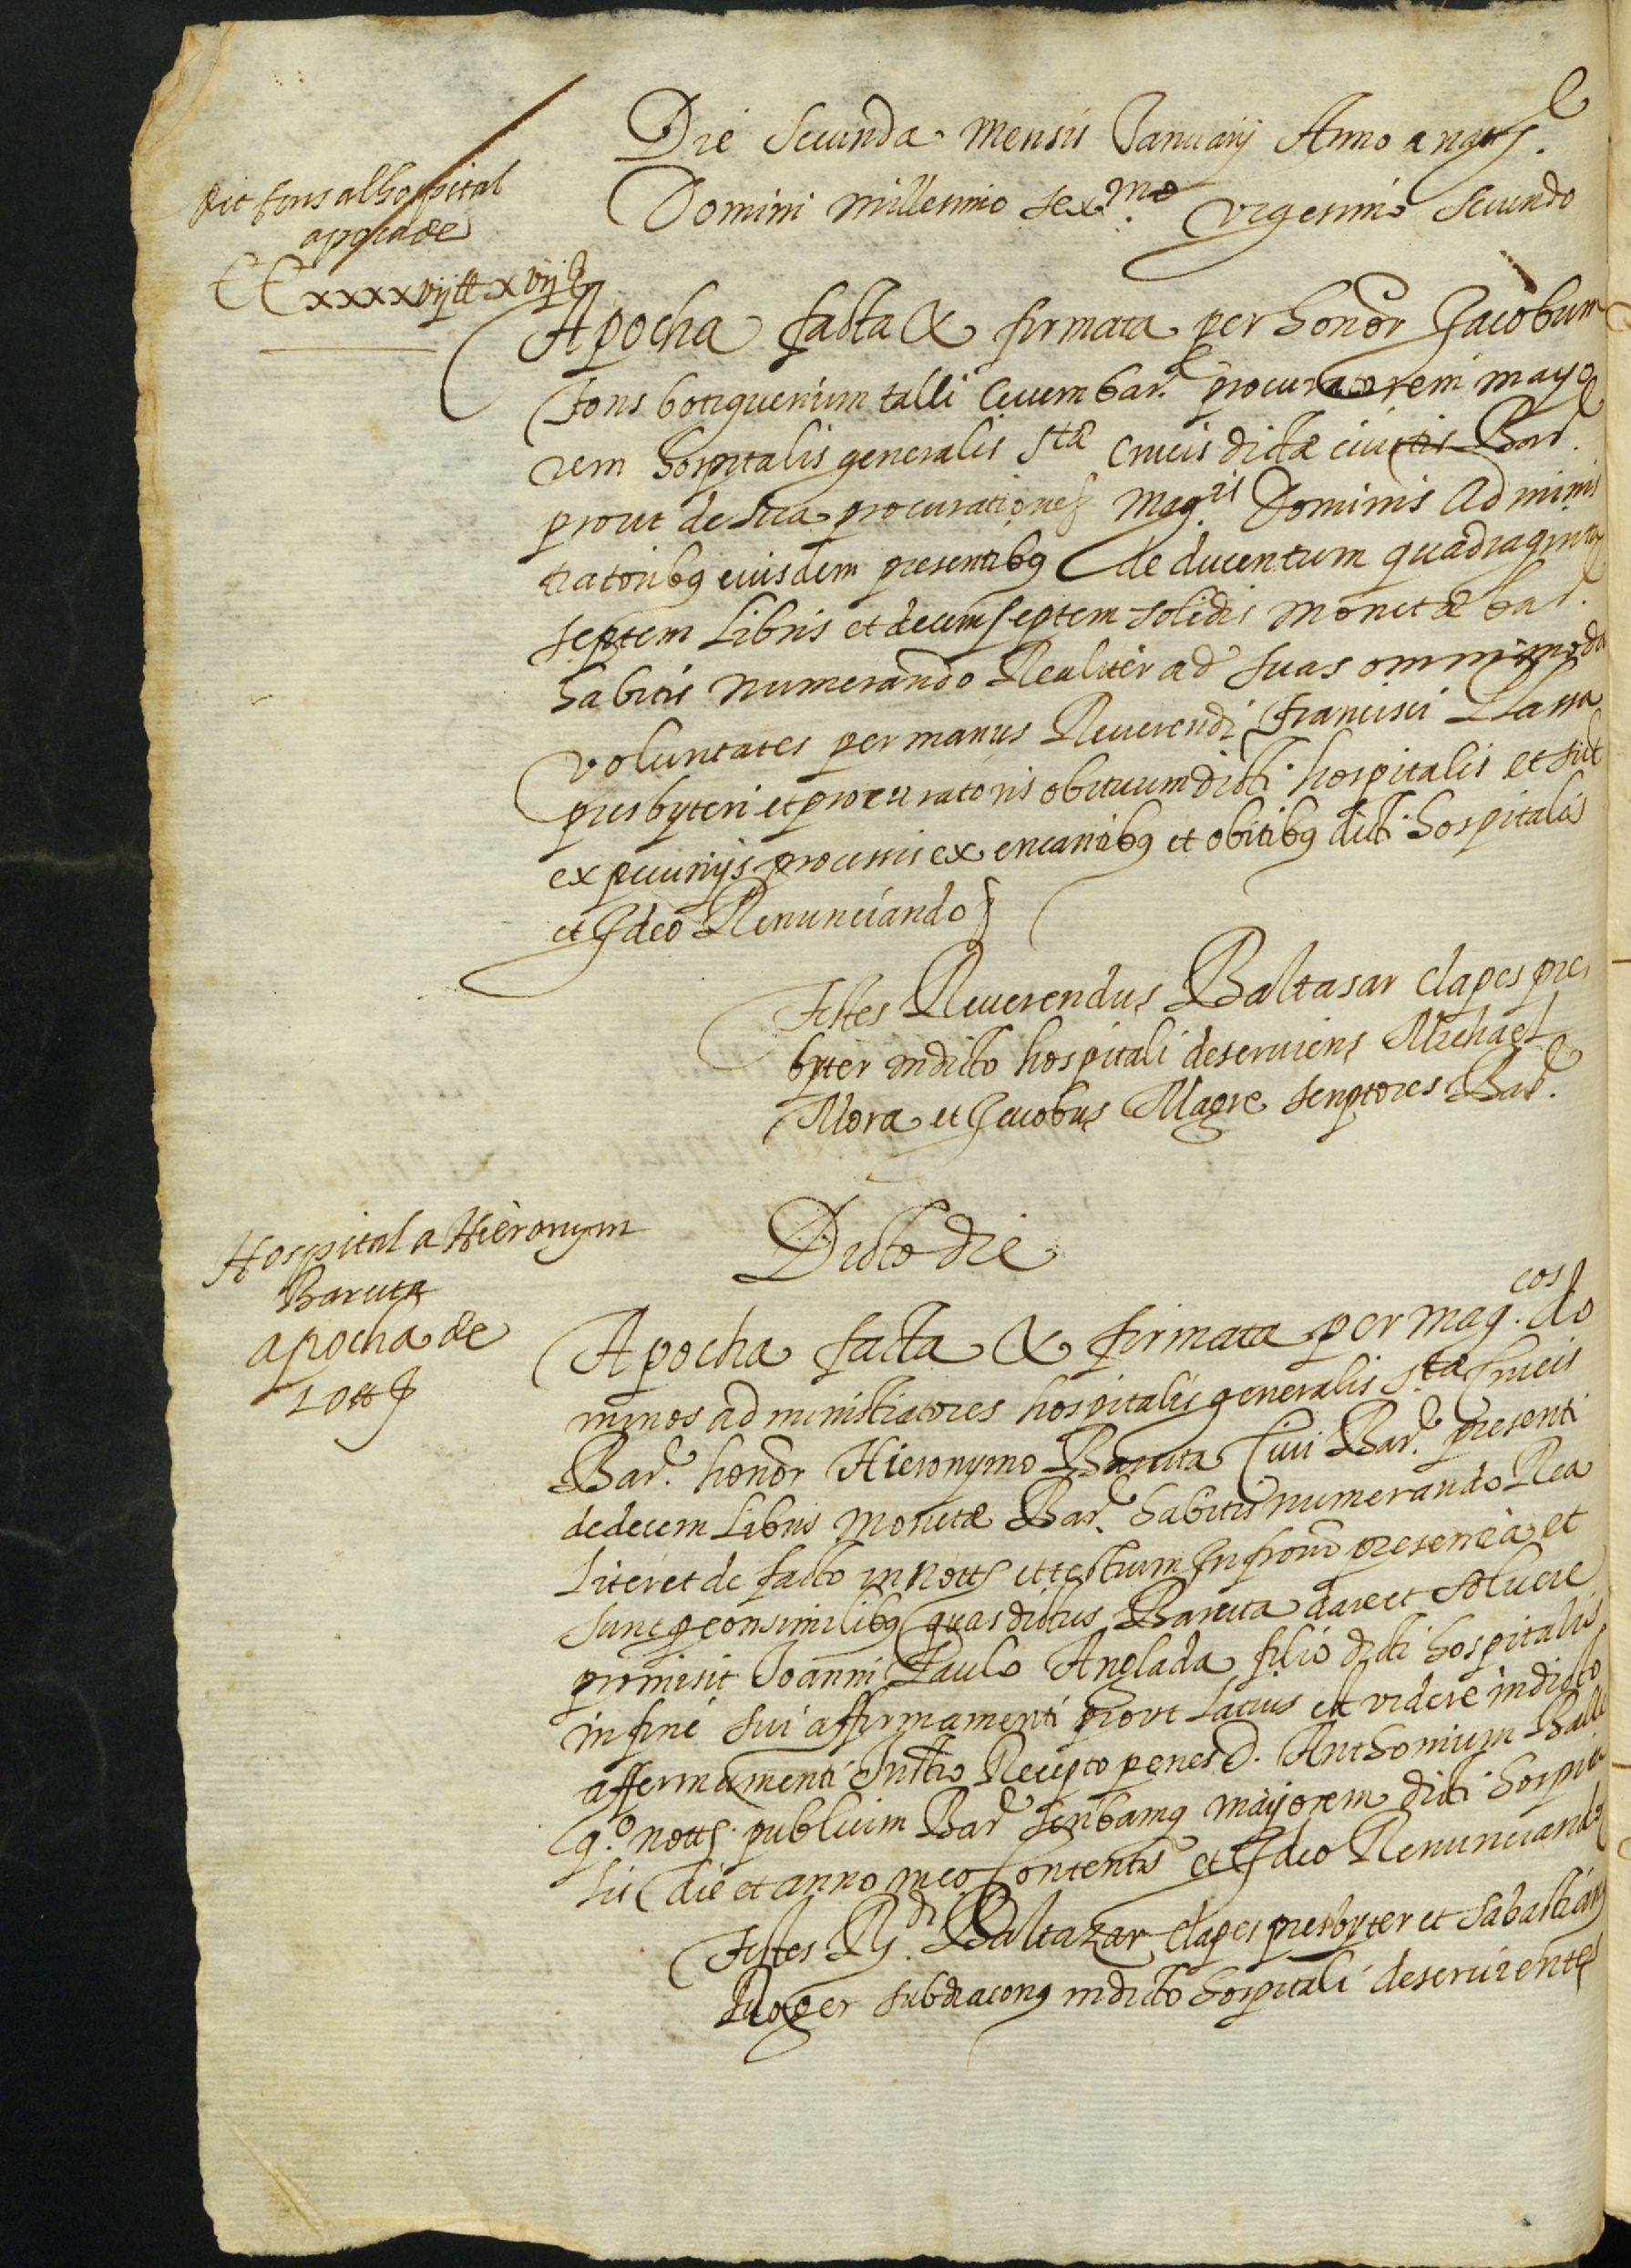 Die secunda mensis Januarij Anno a nat.
Domini millesimo sex.mo vigesimo secundo
dit fons al hospital
apocha de
CCxxxxvij ll xvij s
Apocha facta & firmata per honor Jacobum
fons botiguerium talli Civem bar. procuratorem mayo
rem hospitalis generalis Stæ Crucis dictæ civitis Bar.
prout de sua procuratione Mag.cis Dominis Adminis
tratoribus eiusdem presentibus de ducentum quadraginta
septem Libris et decem septem solidis monetæ bar.
habitis numerando Realiter ad suas omnimoda
voluntates per manus Reverendi Francisci Llassa
presbyteri et procuratoris obituum dicti hospitalis et sut
ex pecunijs processis ex encantibus et obitibus dicti hospitalis
et Ideo Renunciando
Testes Reverendus Baltasar Clapes pres
byter in dicto hospitali deserviens Michael
Mora et Jacobus Magre scriptores Bar.
Hospital a Hieronym
Baruta
apocha de
10 ll
Dicto die
Apocha facta & firmata per mag.cos do
minos administratores hospitalis generalis S.tæ Crucis
Bar. honor Hieronymo Baruta Civi Bar. presenti
de decem Libris monetæ Bar. habitis numerando Rea
liter et de facto in notts et testium Infrorum presentia et
sunt consimilibus quas dictus Baruta dare et solvere
promisit Joanni Paulo Anglada filio dicti hospitalis
in fine sui affirmamenti prout Latius est videre in dicto
affermamenti Instro Recepto penes D. Anthonium Batlle
q.º notts publicum Bar. scribamq mayorem dicti hospita
lis die et anno in eo Contentis et Ideo Renunciando
Testes R.di Baltazar Clapes presbyter et Sabastianus
Roger subdiaconus in dicto hospitali deservientes